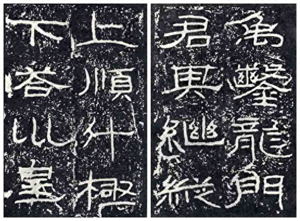 禹鑿龍門
君其繼縱
上順斗極
下答巛皇